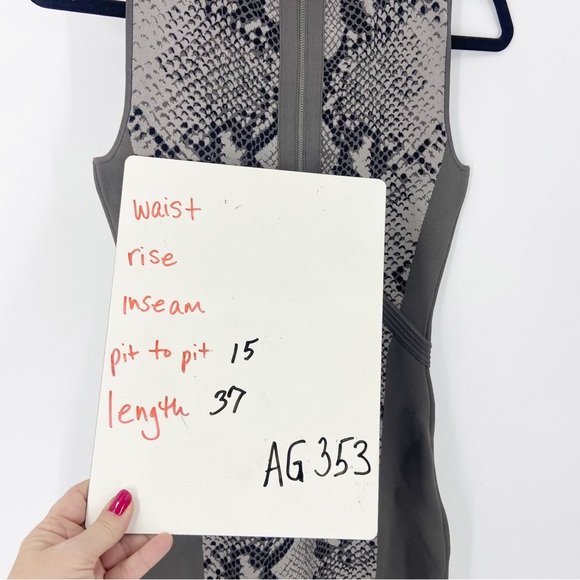 waist
rise
inseam
pit to pit 15
length 37
AG353